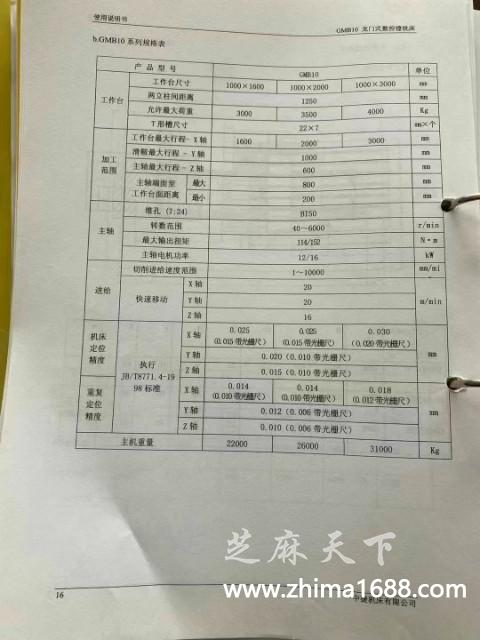 使用说明书
GMB10 龙门式数控镗铣床
b.GMB10系列规格表
产品型号 GMB10 单位
工作台 工作台尺寸 1000×1600 1000×2000 1000×3000 mm
两立柱间距离 1250 mm
允许最大荷重 3000 3500 4000 Kg
T形槽尺寸 22×7 mm×个
加工范围 工作台最大行程-X轴 1600 2000 3000 mm
滑鞍最大行程-Y轴 1000 mm
主轴最大行程-Z轴 600 mm
主轴端面至工作台面距离 最大 800 mm
最小 200 mm
主轴 锥孔(7:24) BT50
转数范围 40~6000 r/min
最大输出扭矩 114/152 N·m
主轴电机功率 12/16 kW
进给 切削进给速度范围 1~10000 mm/mi
快速移动 X轴 20 m/min
Y轴 20
Z轴 16
机床定位精度 执行JB/T8771.4-1998标准 X轴 0.025(0.015带光栅尺) 0.025(0.015带光栅尺) 0.030(0.020带光栅尺) mm
Y轴 0.020(0.010带光栅尺)
Z轴 0.015(0.010带光栅尺)
重复定位精度 X轴 0.014(0.010带光栅尺) 0.014(0.010带光栅尺) 0.018(0.012带光栅尺) mm
Y轴 0.012(0.006带光栅尺)
Z轴 0.010(0.006带光栅尺)
主机重量 22000 26000 31000 Kg
芝麻天下
www.zhima1688.com
16
机床有限公司